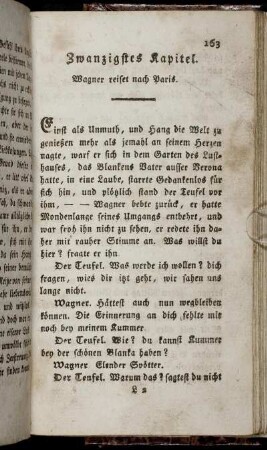 163
Zwanzigstes Kapitel.
Wagner reiset nach Paris.
Einst als Unmuth, und Hang die Welt zu
genießen mehr als jemahl an seinem Herzen
nagte, warf er sich in dem Garten des Lust-
hauses, das Blankens Vater ausser Verona
hatte, in eine Laube, starrte Gedankenlos für
sich hin, und plötzlich stand der Teufel vor
ihm, — — Wagner bebte zurück, er hatte
Mondenlange seines Umgangs entbehrt, und
war froh ihn nicht zu sehen, er redete ihn da-
her mit rauher Stimme an. Was willst du
hier? fragte er ihn
Der Teufel. Was werde ich wollen? dich
fragen, wies dir itzt geht, wir sahen uns
lange nicht.
Wagner. Hättest auch nun wegbleiben
können. Die Erinnerung an dich fehlte mit
noch bey meinem Kummer
Der Teufel. Wie? du kannst Kummer
bey der schönen Blanka haben?
Wagner Elender Spötter.
Der Teufel. Warum das? sagtest du nicht
L 2